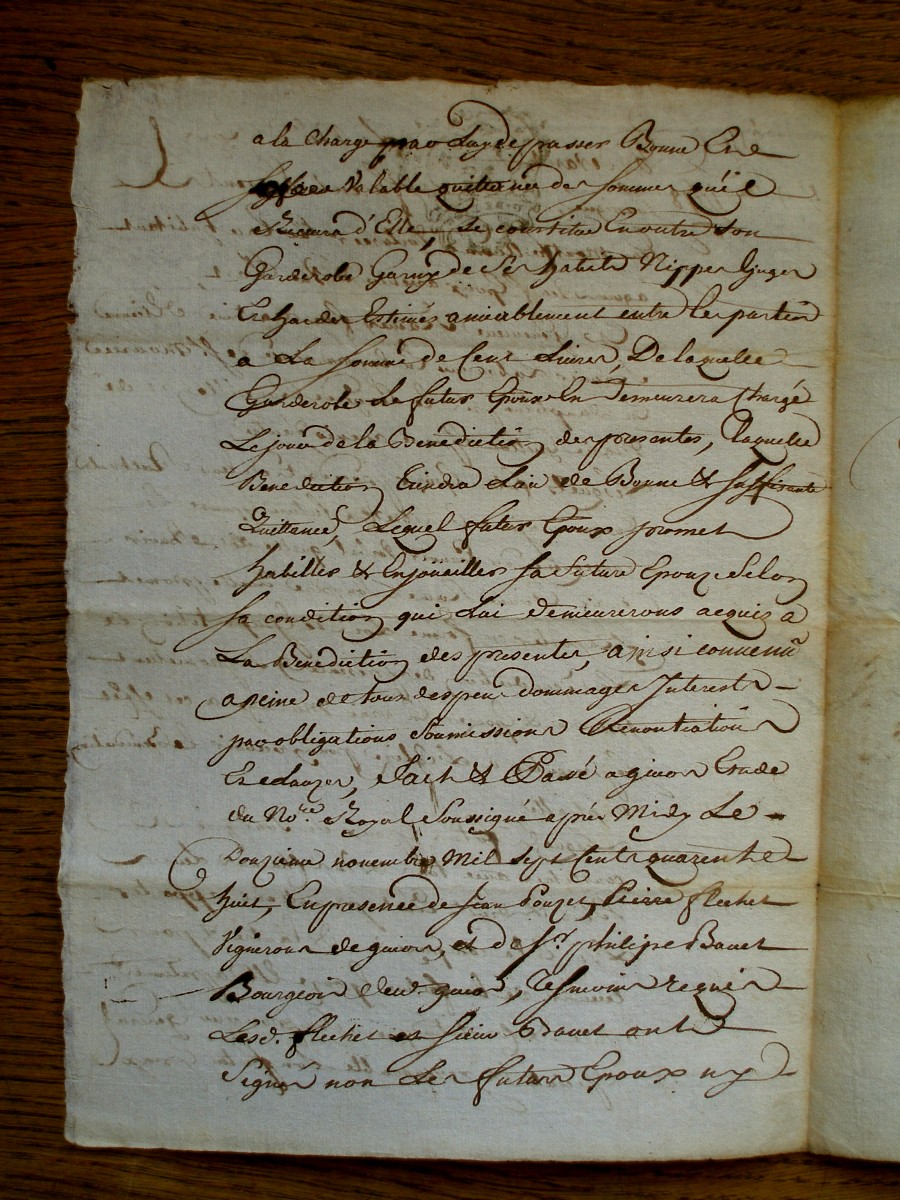 a la charge par Luy de passer Bonne Et
Valable quittance des sommes qu'il
Recevra d'Elle, se constitue En outre son
Garderobe Garny de ses habits Nippes linges
Et hardes Estimés amiablement entre les parties
a La somme de Cent Livres, De laquelle
Garderobe Le futur Epoux En Demeurera Chargé
Le jour de la Benediction des presentes, laquelle
Benediction tiendra Lieu de Bonne & suffisante
Quittance, Lequel futur Epoux promet
habiller & Enjouailler sa future Epouze selon
sa condition qui Lui demeureront acquis a
La Benediction des presentes, ainsi convenu
a peine de tous despens dommages Interests
par obligations soumissions Renontiations
Et clauzes, fait & Passé a givors Etude
du No.re Royal Soussigné apres Midy Le
Douzieme novembre Mil sept Cents quarente
huit, En presence de Jean Pouzet, Pierre flechet
Vignerons de givors, et de Sr. philipe Bauet
Bourgeois dud. givors, tesmoins requis
Lesd. flechet et sieur Bauet ont
signés non Les futurs Epoux ny